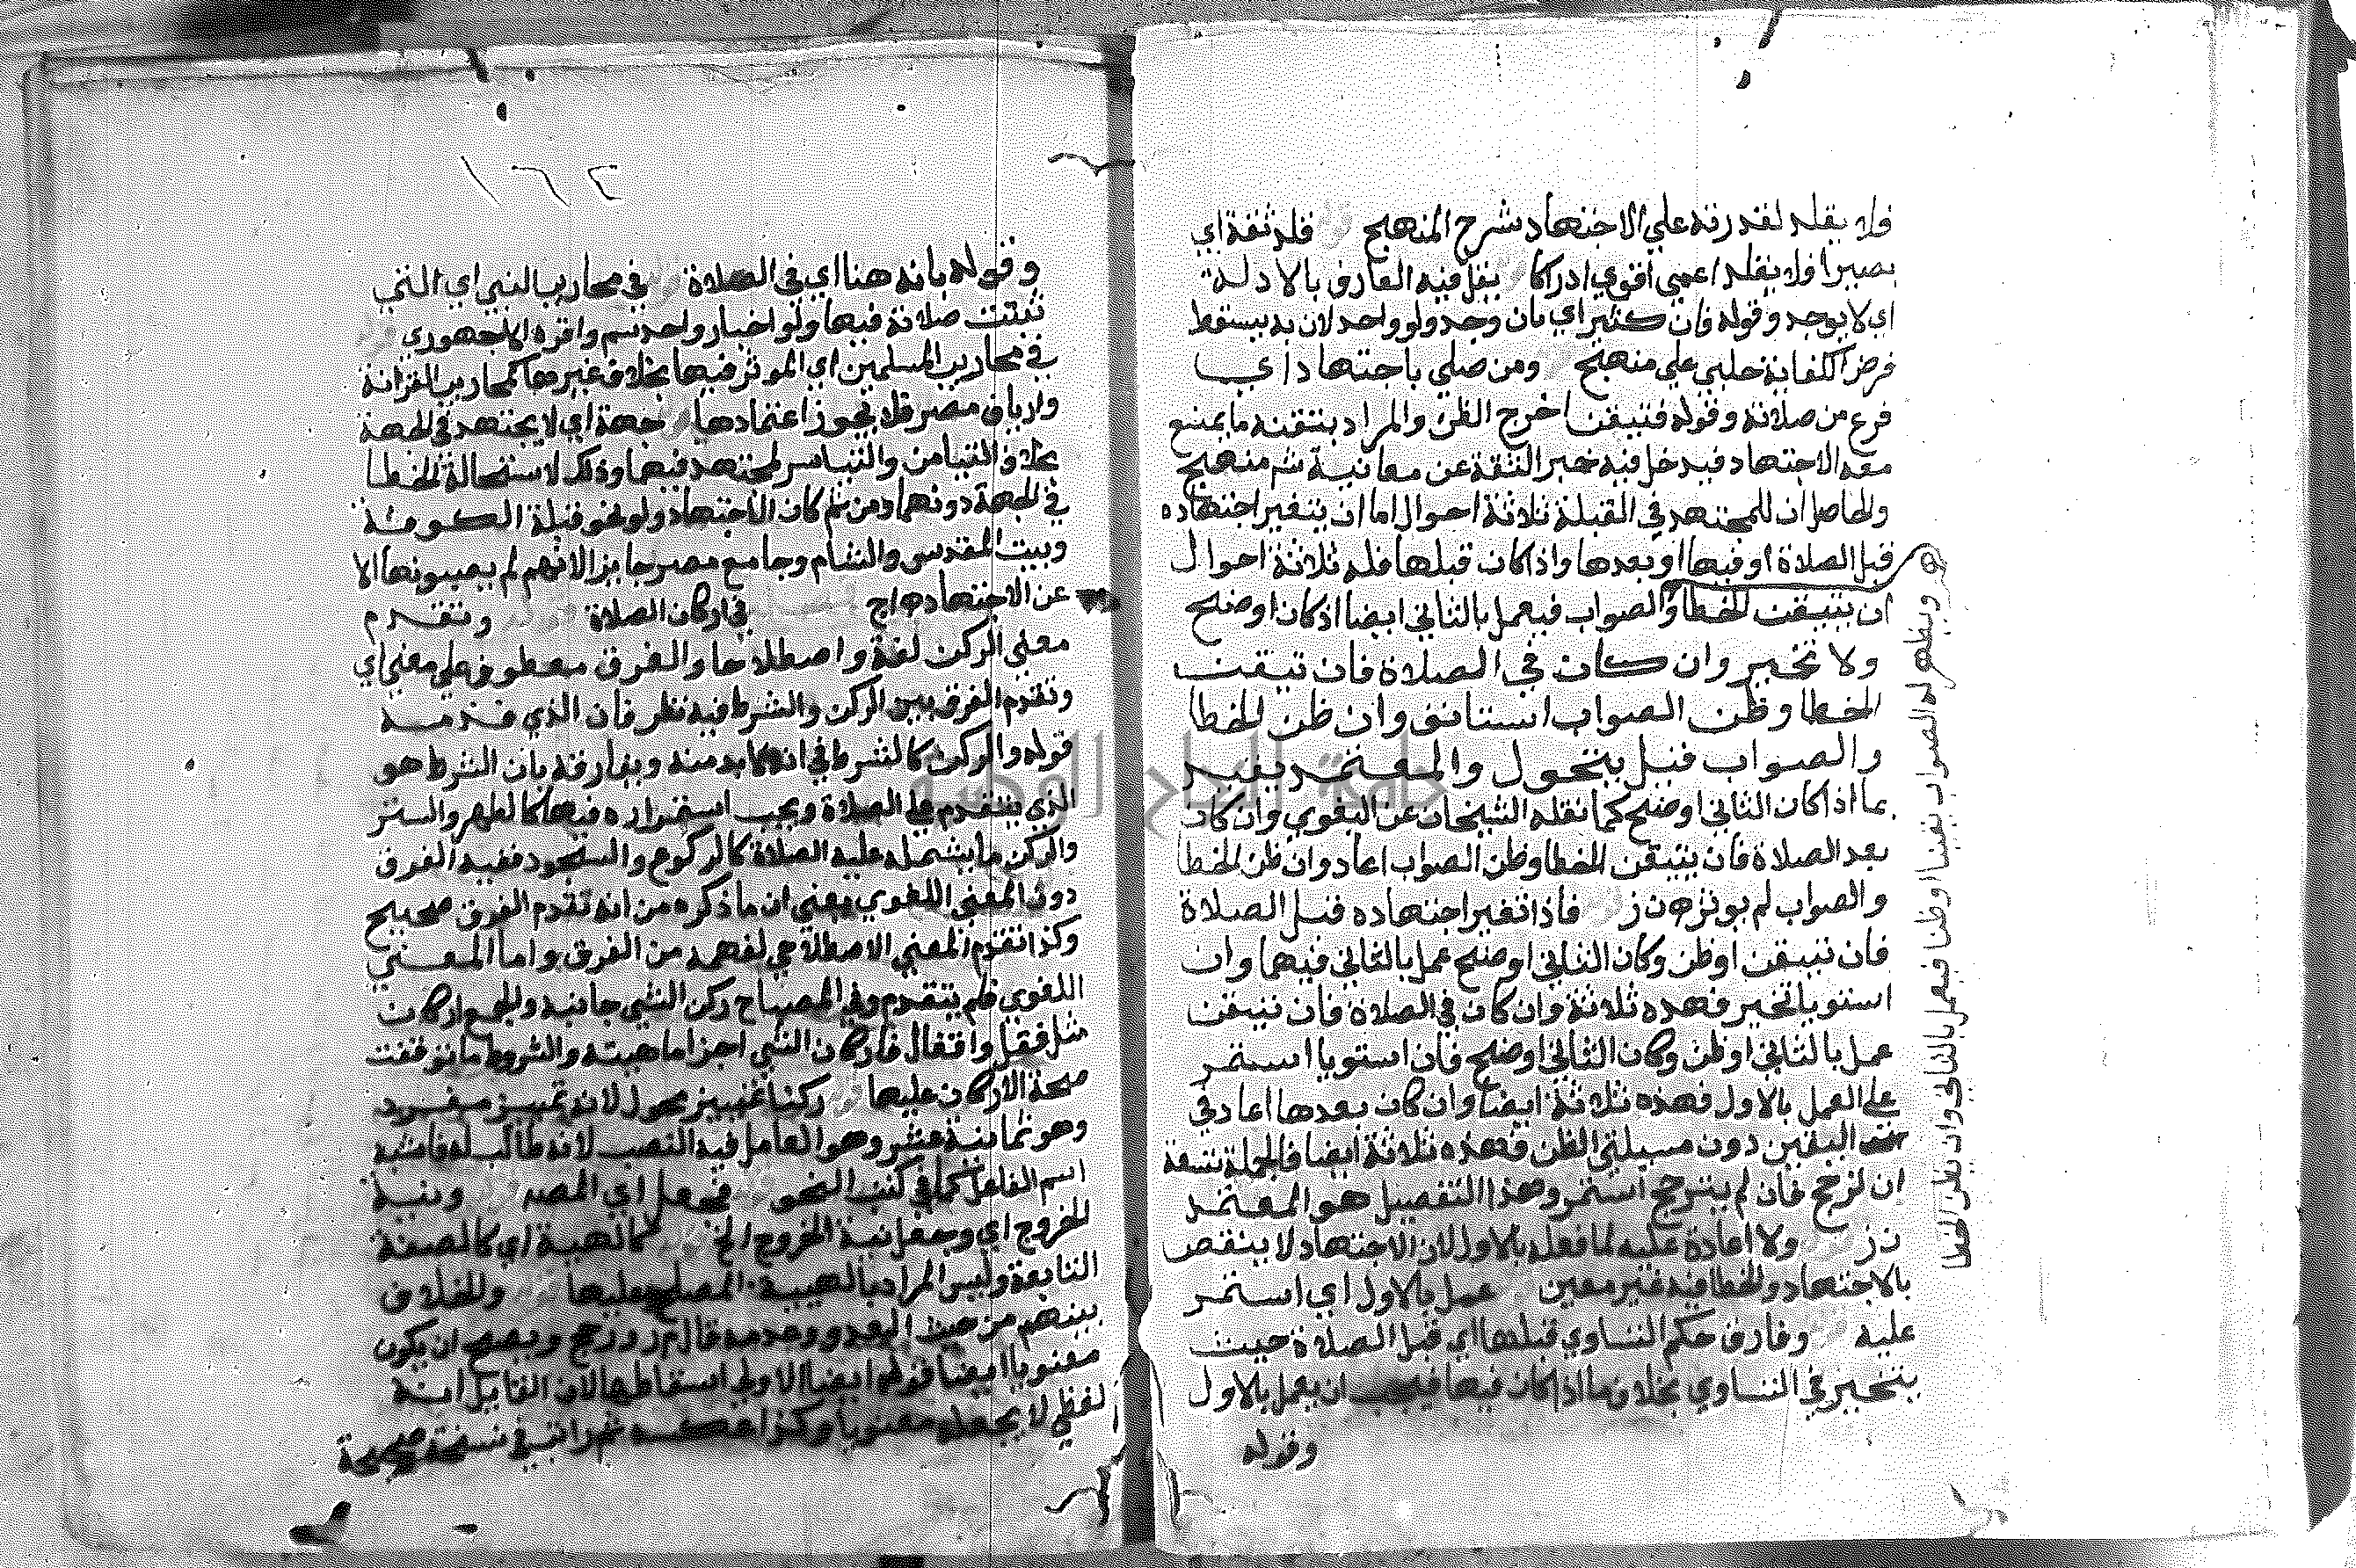 فلا يقلد لقدرته علي الاجتهاد شرح المنهج فلد ثقة اي
بصيرا فلا يقلد اعمي اقوي ادراكا يقل فيه العارف بالادلة
اي لا يوجد وقوله فان كثير اي بان وجد ولو واحد لان به يسقط
فرض الكفاية حلبي علي منهج ومن صلي باجتهاد اي
فرع من صلاته وقوله فتيقن اخرج الظن والمراد بتيقنه ما يمتنع
معه الاجتهاد فيدخل فيه خبر الثقة عن معانية شم منهج
والحاصل ان للمجتهد في القبلة ثلاثة احوال اما ان يتغير اجتهاده
قبل الصلاة او فيها او بعدها واذا كان قبلها فله ثلاثة احوال
ان يتيقن الخطا والصواب فيعمل بالثاني ايضا اذ كان اوضح
ولا تخير وان كان في الصلاة فان تيقن
الخطا وظن الصواب استانف وان ظن الخطا
والصواب قبل يتحول والمعتمد يقيد
بما اذا كان الثاني اوضح كما نقله الشيخان عن البغوي وان كان
بعد الصلاة فان يتيقن الخطا وظن الصواب اعاد وان ظن الخطا
والصواب لم يوثر ه ن ز فاذا تغير اجتهاده قبل الصلاة
فان تيقن او ظن وكان الثاني اوضح عمل بالثاني فيهما وان
استويا تخير فهده ثلاثة وان كان في الصلاة فان تيقن
عمل بالثاني او ظن وكان الثاني اوضح فان استويا استمر
علي العمل بالاول فهذه ثلاثة ايضا وان كان بعدها اعاد في
اليقين دون مسيلتي الظن فهذه ثلاثة ايضا فالجملة تسعة
ان ترجح فان لم يترجح استمر وهذا التفصيل هو المعتمد
ن ز ولا اعادة عليه لما فعله بالاول لان الاجتهاد لا ينقض
بالاجتهاد والخطا فيه غير معين عمل بالاول اي استمر
عليه وفارق حكم التساوي قبلها اي قبل الصلاة حيث
يتخير في التساوي بخلاف ما اذا كان فيها فيجب ان يعمل بالاول
وقوله
ويظهر له الصواب يقينا او ظنا فيعمل بالثاني وان ظن الخطا
١٦٢
وقوله بانه هنا اي في الصلاة في محاريب النبي اي التي
ثبتت صلاته فيها ولو اخبار واحد سم واقره الاجهوري
في محاريب المسلمين اي الموثوق فيها بخلاف غيرها كمحاريب القرافة
وارياف مصر فلا يجوز اعتمادها جهة اي لا يجتهد في الجهة
بخلاف التيامن والتياسر لمجتهد فيها وذلك لاستحالة الخطا
في الجهة دونهما ومن ثم كان الاجتهاد ولو نحو قبلة الكوفة
وبيت المقدس والشام وجامع مصر جايز الانهم لم ينصبونها الا
عن الاجتهاد ه اج في اركان الصلاة وتقدم
معني الركن لغة واصطلاحا والفرق معطوف علي معني اي
وتقدم الفرق بين الركن والشرط فيه نظر فان الذي قدمه
قوله والركن كالشرط في انه لا بد منه ويفارقه بان الشرط هو
الذي يتقدم علي الصلاة ويجب استمراره فيها كالطهر والستر
والركن ما يشمله عليه الصلاة كالركوع والسجود ففيه الفرق
دون المعني اللغوي يعني ان ما ذكره من انه تقدم الفرق صحيح
وكذا تقدم المعني الاصطلاحي لفهمه من الفرق واما المعني
اللغوي فلم يتقدم وفي المصباح ركن الشي جانبه والجمع اركان
مثل قفل واقفال فاركان الشي اجزا ماهيته والشروط ما توقفت
صحة الاركان عليها ركنا تمييز محول لانه تمييز مفرد
وهو ثمانية عشر وهو العامل فيه النصب لانه طالب له فاشبه
اسم الفاعل كما في كتب النحو فجعل اي المص ونية
الخروج اي وجعل نية الخروج الخ كالهيية اي كالصفة
التابعة وليس المراد بالهيية المصطلح عليها والخلاف
بينهم من حيث العد وعدمه قال م ر ورجح ويصح ان يكون
معنويا ايضا قوله ايضا الاولي اسقاطها لان القايل انه
لفظي لا يجعله معنويا وكذا عكسه ثم رايت في نسخة صحيحة